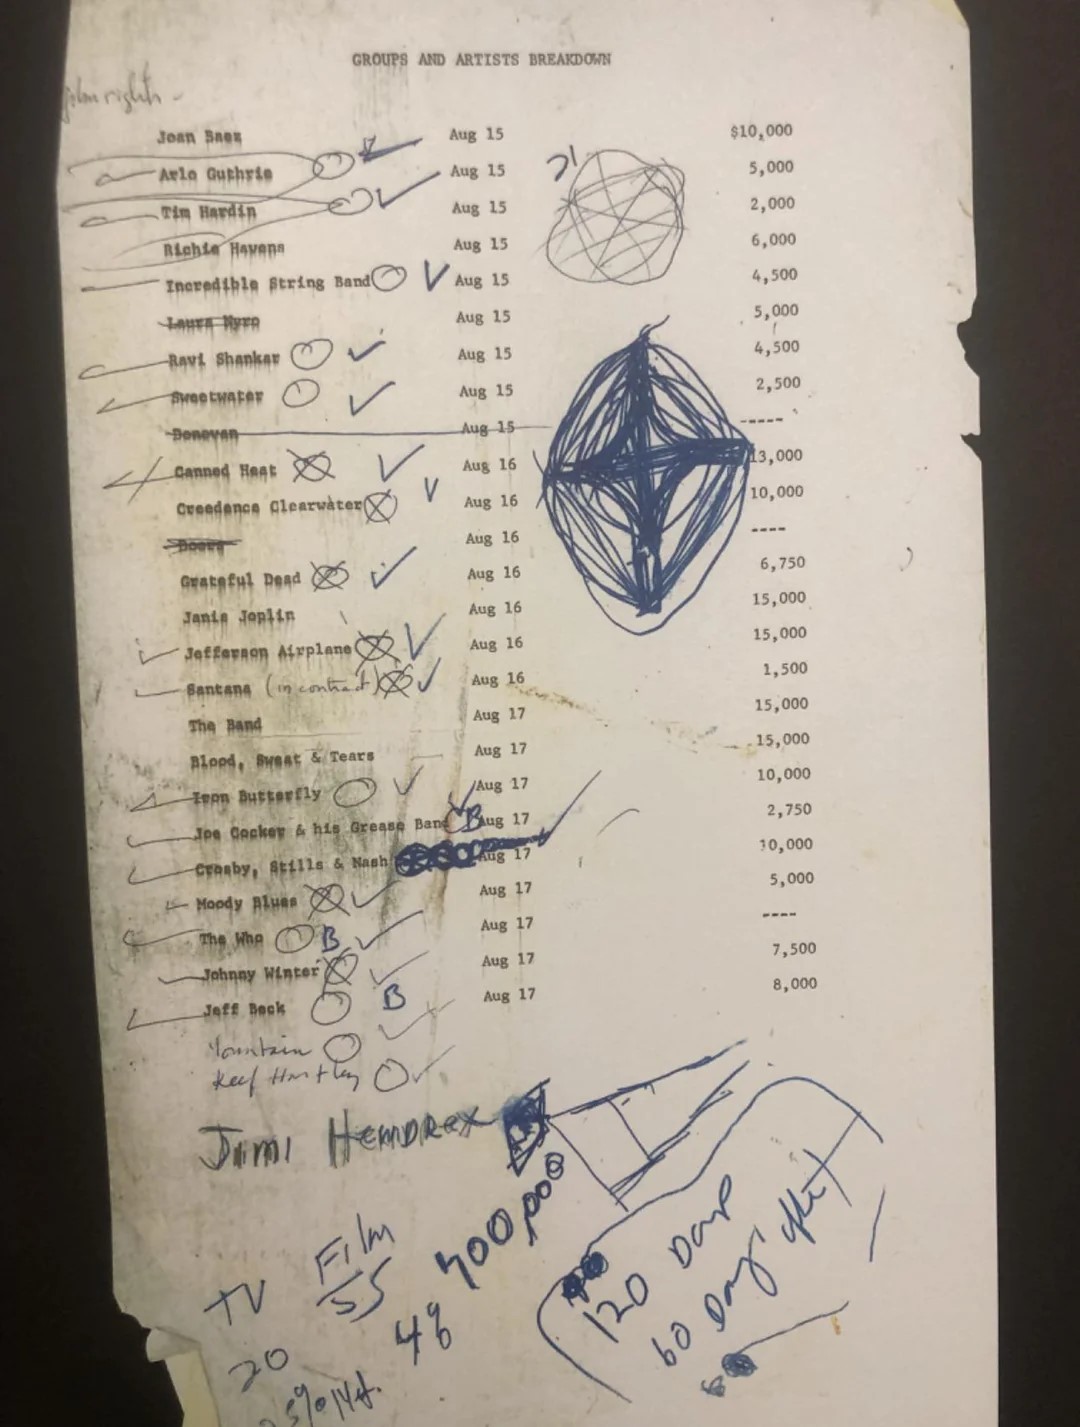 GROUPS AND ARTISTS BREAKDOWN
film rights -
Joan Baez Aug 15 $10,000
Arlo Guthrie Aug 15 5,000
Tim Hardin Aug 15 2,000
Richie Havens Aug 15 6,000
Incredible String Band Aug 15 4,500
Laura Nyro Aug 15 5,000
Ravi Shankar Aug 15 4,500
Sweetwater Aug 15 2,500
Donovan Aug 15 -----
Canned Heat Aug 16 13,000
Creedance Clearwater Aug 16 10,000
Doors Aug 16 ----
Grateful Dead Aug 16 6,750
Janis Joplin Aug 16 15,000
Jefferson Airplane Aug 16 15,000
Santana (in contract) Aug 16 1,500
The Band Aug 17 15,000
Blood, Sweat & Tears Aug 17 15,000
Iron Butterfly Aug 17 10,000
Joe Cocker & his Grease Band B Aug 17 2,750
Crosby, Stills & Nash Aug 17 10,000
Moody Blues Aug 17 5,000
The Who B Aug 17 ----
Johnny Winter Aug 17 7,500
Jeff Beck B Aug 17 8,000
Mountain
Keef Hartley
Jimi Hemdrex
400,000
TV Film
20 55
48
120 Days
60 Days after